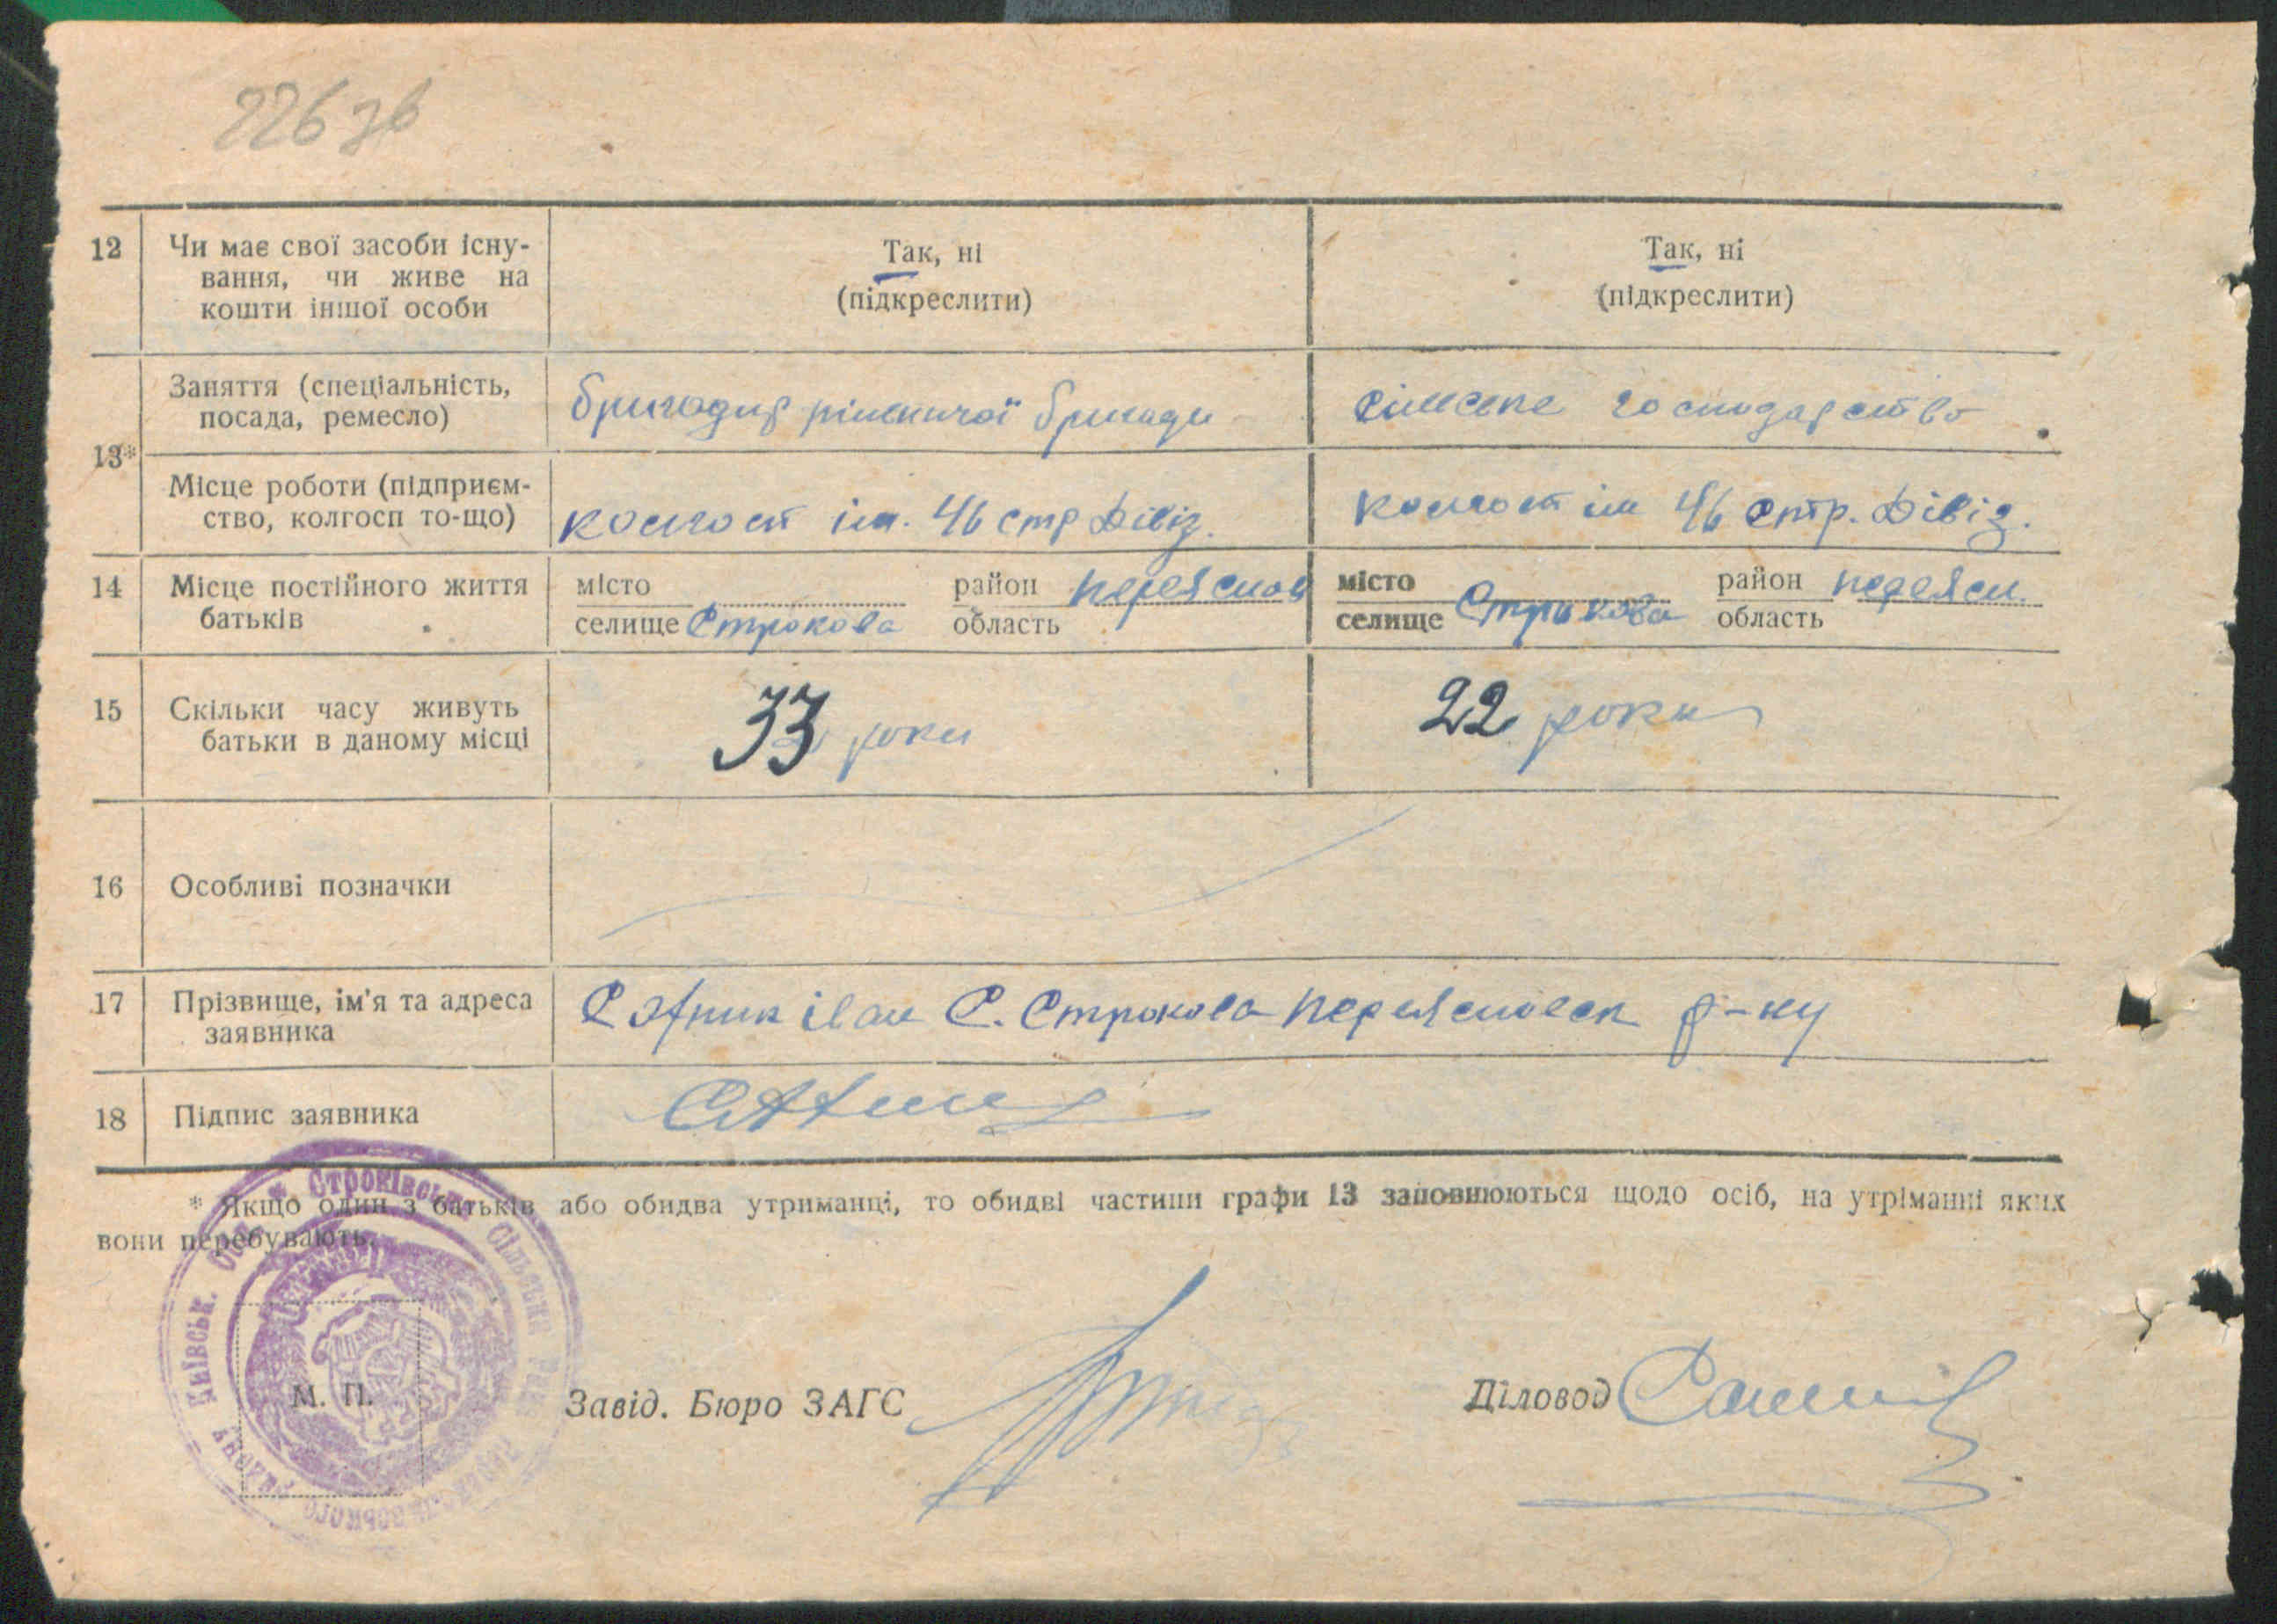 226 зв
12 Чи має свої засоби існу- Так, ні Так, ні
вання, чи живе на (підкреслити) (підкреслити)
кошти іншої особи
13* Заняття (спеціальність, бригадир рільничої бригади сільське господарство
посада, ремесло)
Місце роботи (підприєм- колгосп ім. 46 стр Дівіз. колгосп ім 46 стр. Дівіз.
ство, колгосп то-що)
14 Місце постійного життя місто район Переяслов місто район Переясл.
батьків селище Строкова область селище Строкова область
15 Скільки часу живуть 33 роки 22 роки
батьки в даному місці
16 Особливі позначки
17 Прізвище, ім'я та адреса Іван С. Строкова Переясловск р-ну
заявника
18 Підпис заявника
* Якщо один з батьків або обидва утриманці, то обидві частини графи 13 заповнюються щодо осіб, на утріманні яких
вони перебувають.
М. П. Завід. Бюро ЗАГС Діловод
* Строківська Сільська Рада
району Київськ. Обл.